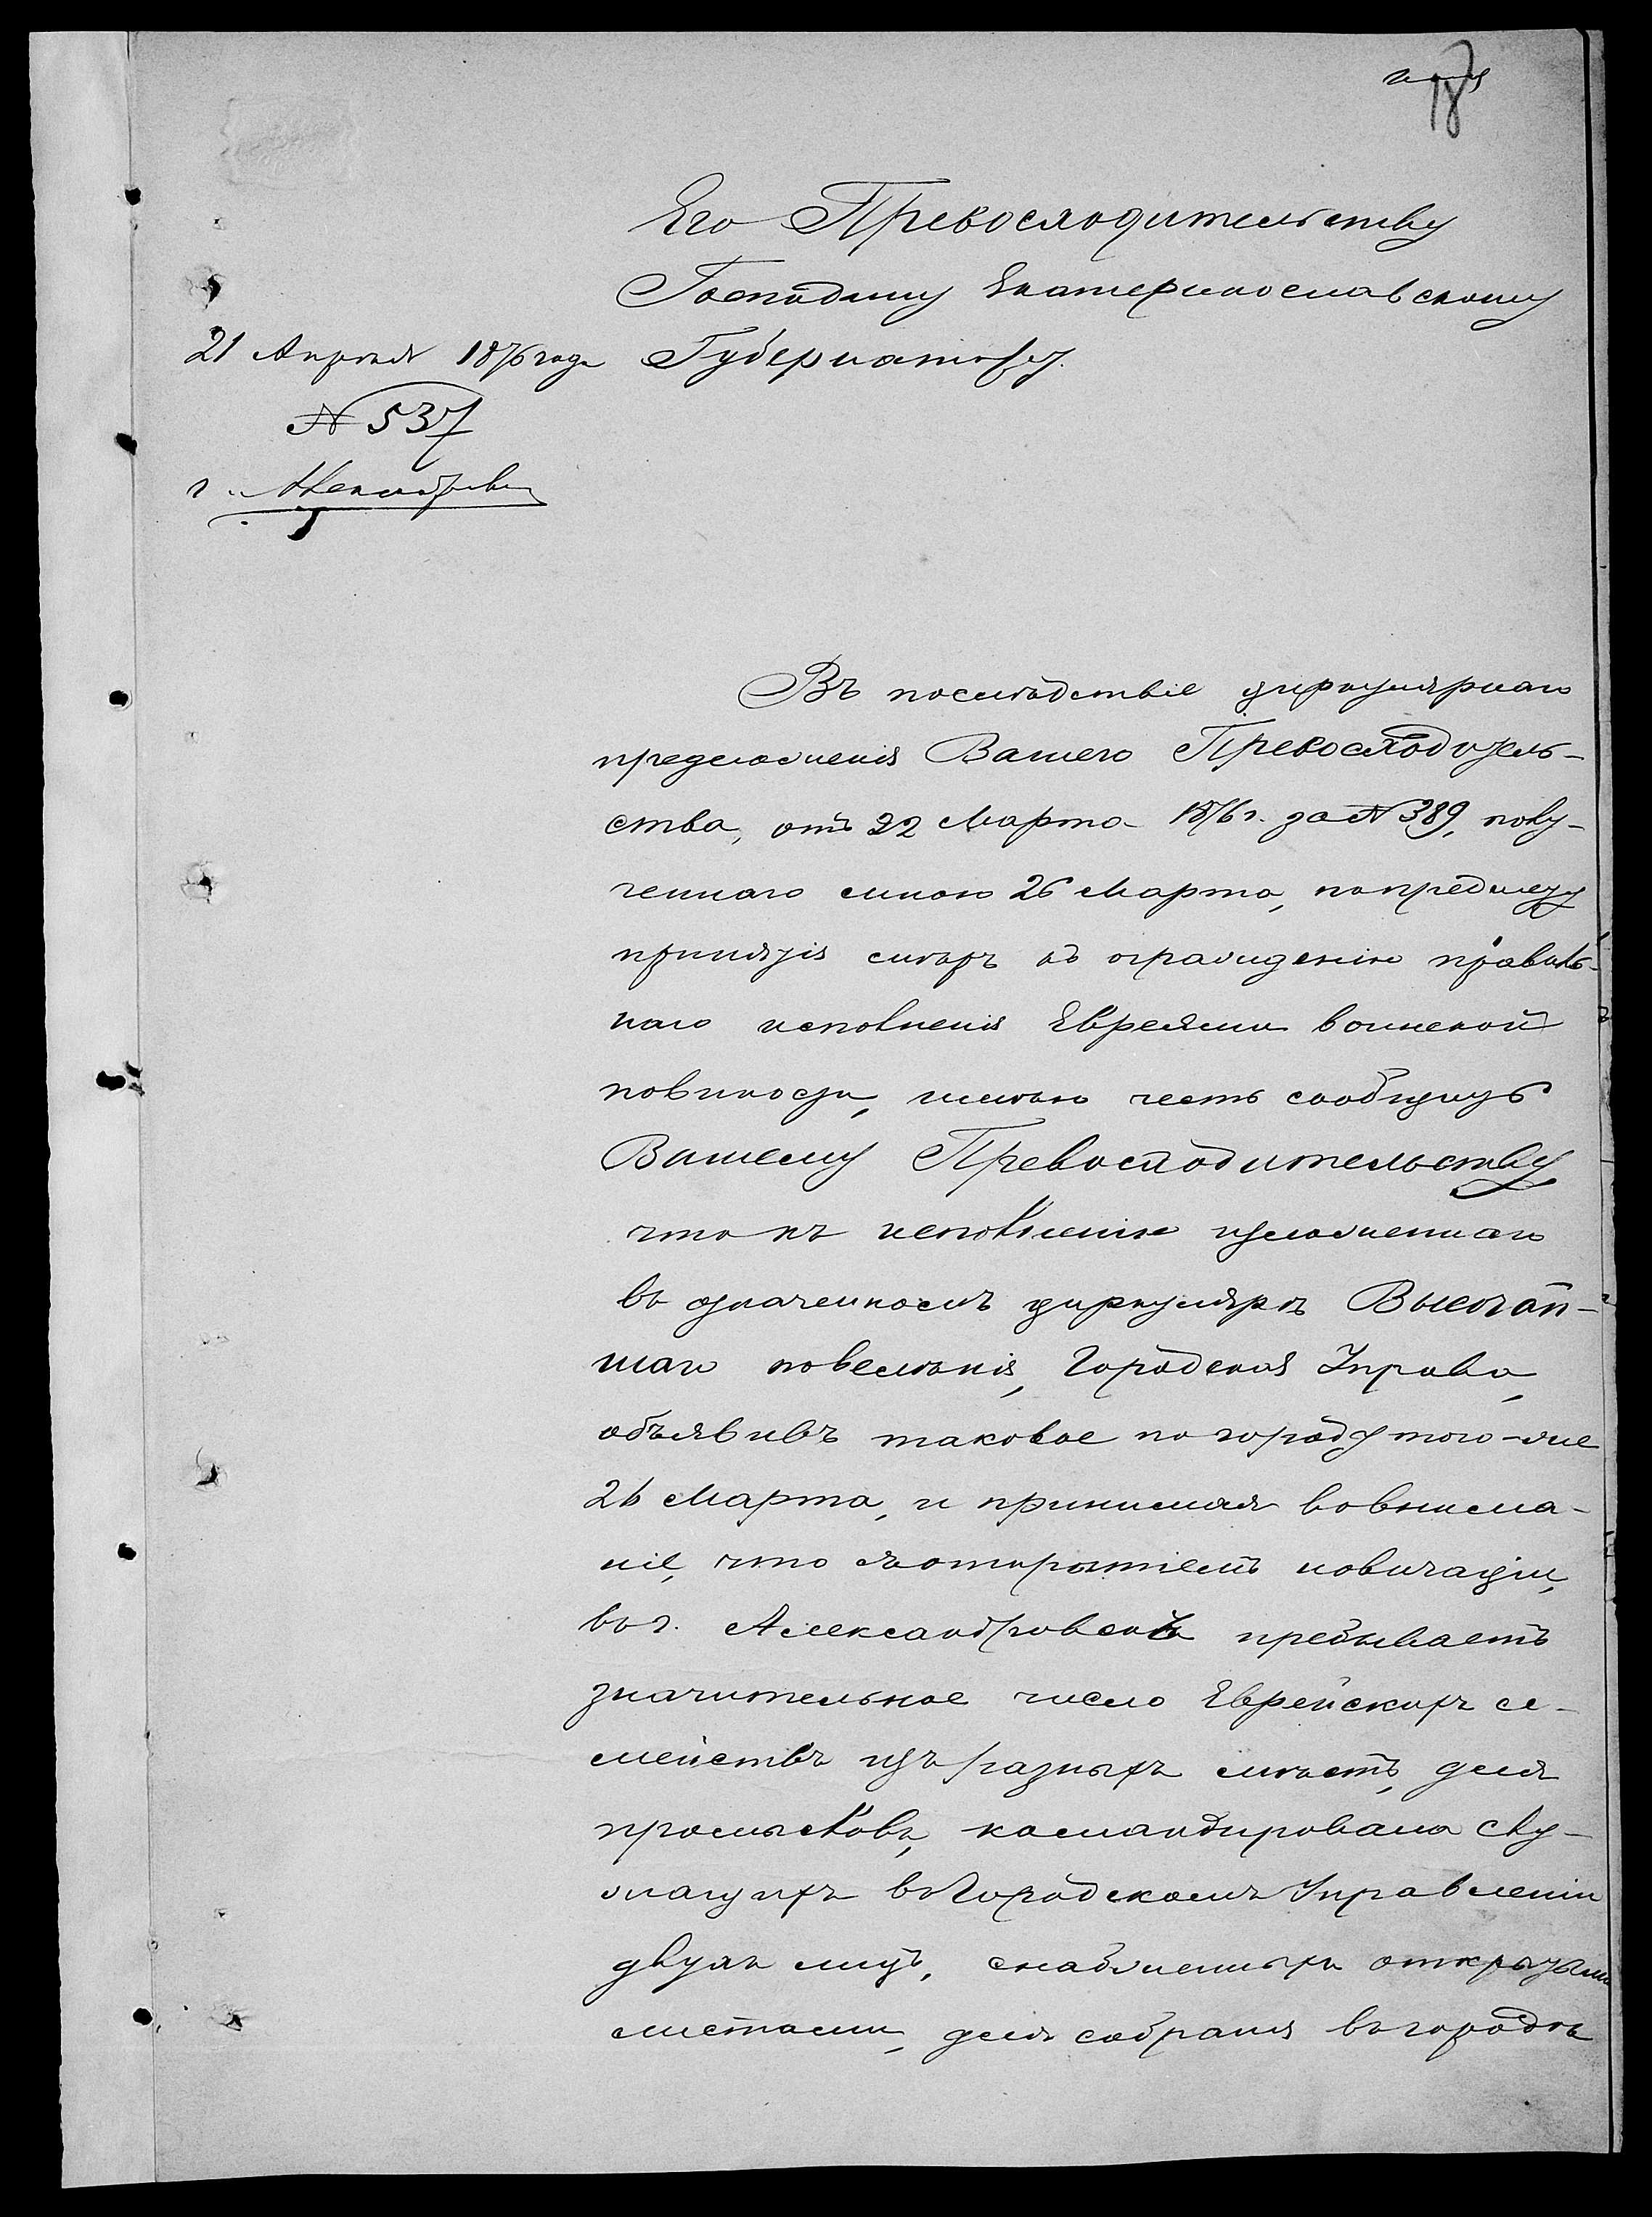 18
Его Превосходительству
Господину Екатеринославскому
Губернатору.
21 Апреля 1876 года
№ 537
г. Александровск
Въ последствіе циркулярнаго
предложенія Вашего Превосходитель-
ства, отъ 22 Марта 1876 г. за № 389, полу-
ченнаго мною 26 Марта, по предмету
принятія мѣръ къ огражденію правиль-
наго исполненія Евреями воинской
повиности, имѣю честь сообщить
Вашему Превосходительству
что къ исполненію изложеннаго
въ означенномъ циркулярѣ Высочай-
шаго повелѣнія, Городская Управа,
объявивъ таковое по городу того-же
26 Марта, и принимая во внима-
ніе, что съ открытіемъ новигаціи,
въ г. Александровскѣ пребываетъ
значительное число Еврейскихъ се-
мействъ изъ разныхъ мѣстъ, для
промысловъ, командировала слу-
жащихъ въ Городскомъ Управленіи
двухъ лицъ, снабженныхъ открытыми
листами, для собранія въ городѣ